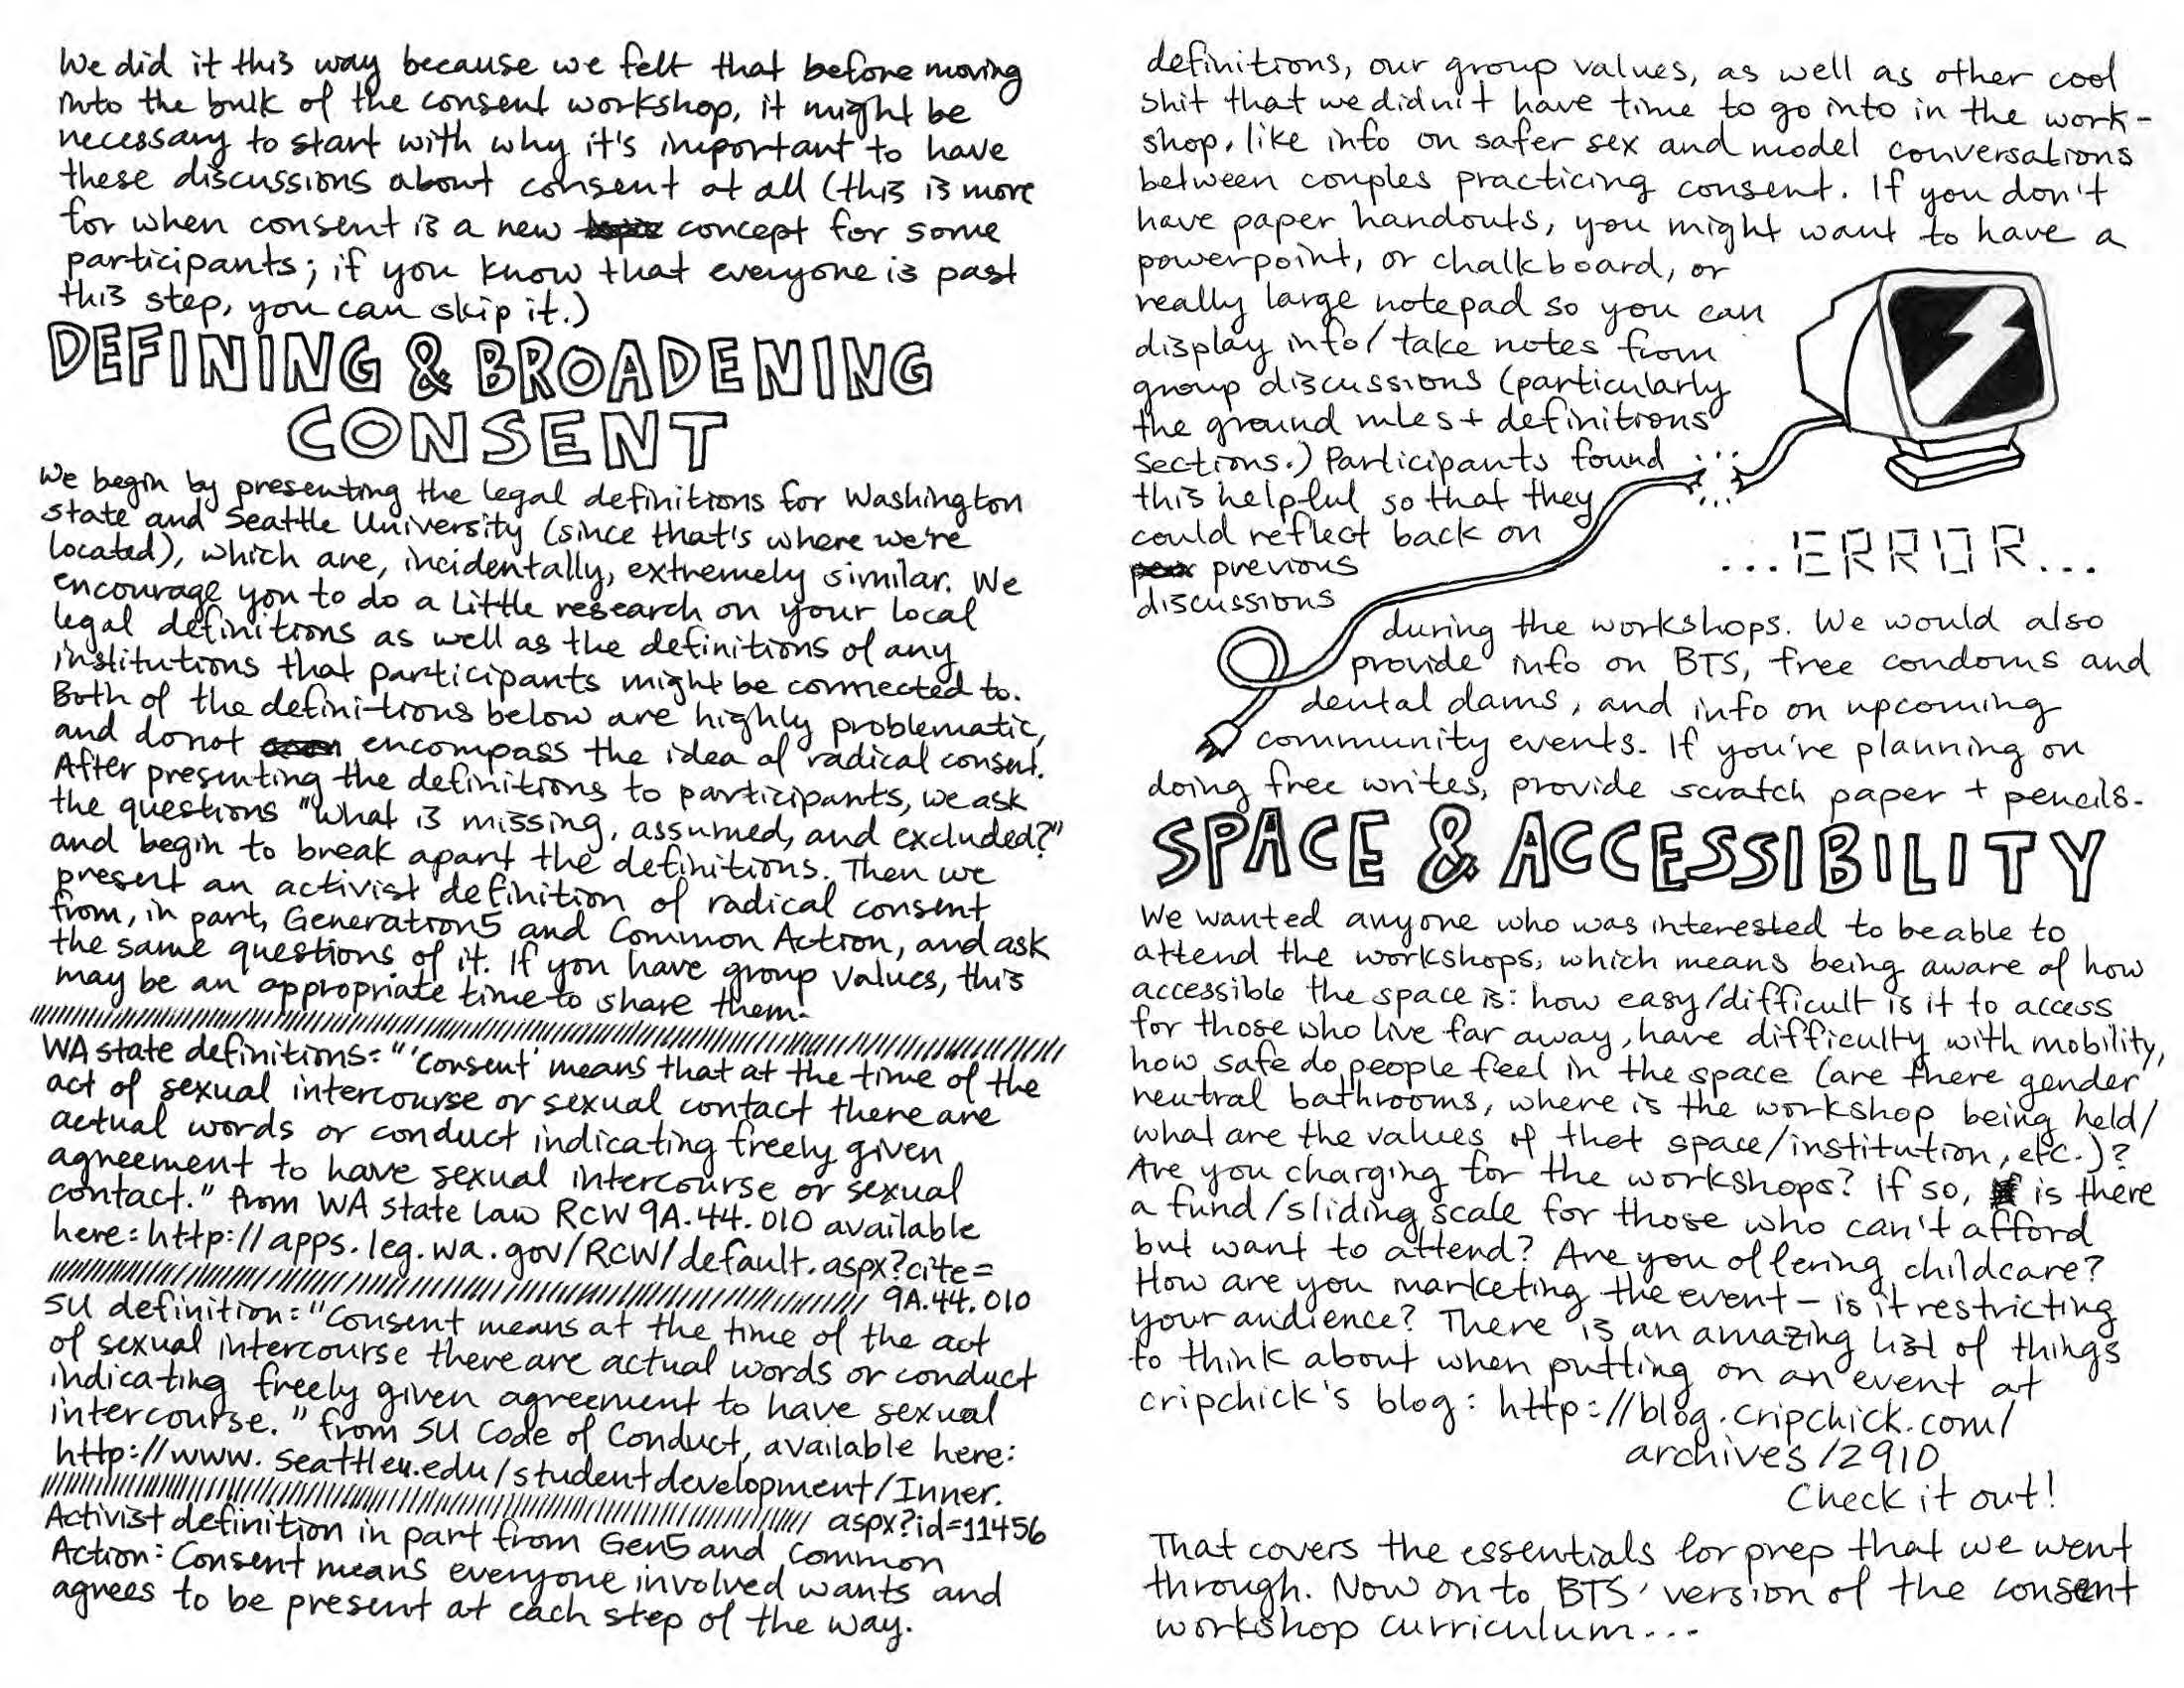 We did it this way because we felt that before moving
into the bulk of the consent workshop, it might be
necessary to start with why it's important to have
these discussions about consent at all (this is more
for when consent is a new concept for some
participants; if you know that everyone is past
this step, you can skip it.)
DEFINING & BROADENING
CONSENT
We begin by presenting the legal definitions for Washington
state and Seattle University (since that's where we're
located), which are, incidentally, extremely similar. We
encourage you to do a little research on your local
legal definitions as well as the definitions of any
institutions that participants might be connected to.
Both of the defini-tions below are highly problematic,
and do not encompass the idea of radical consent.
After presenting the definitions to participants, we ask
the questions "What is missing, assumed, and excluded?"
and begin to break apart the definitions. Then we
present an activist definition of radical consent
from, in part, Generation5 and Common Action, and ask
the same questions of it. If you have group values, this
may be an appropriate time to share them.
WA state definitions: "'Consent' means that at the time of the
act of sexual intercourse or sexual contact there are
actual words or conduct indicating freely given
agreement to have sexual intercourse or sexual
contact." from WA state law RCW 9A.44.010 available
here: http://apps.leg.wa.gov/RCW/default.aspx?cite=
9A.44.010
SU definition: "Consent means at the time of the act
of sexual intercourse there are actual words or conduct
indicating freely given agreement to have sexual
intercourse." from SU Code of Conduct, available here:
http://www.seattleu.edu/studentdevelopment/Inner.
aspx?id=11456
Activist definition in part from Gen5 and Common
Action: Consent means everyone involved wants and
agrees to be present at each step of the way.
definitions, our group values, as well as other cool
shit that we didn't have time to go into in the work-
shop, like info on safer sex and model conversations
between couples practicing consent. If you don't
have paper handouts, you might want to have a
powerpoint, or chalkboard, or
really large notepad so you can
display info/take notes from
group discussions (particularly
the ground rules + definitions
sections.) Participants found
this helpful so that they
could reflect back on
previous
discussions
...ERROR...
during the workshops. We would also
provide info on BTS, free condoms and
dental dams, and info on upcoming
community events. If you're planning on
doing free writes, provide scratch paper + pencils.
SPACE & ACCESSIBILITY
We wanted anyone who was interested to be able to
attend the workshops, which means being aware of how
accessible the space is: how easy/difficult is it to access
for those who live far away, have difficulty with mobility,
how safe do people feel in the space (are there gender
neutral bathrooms, where is the workshop being held/
what are the values of that space/institution, etc.)?
Are you charging for the workshops? If so, is there
a fund/sliding scale for those who can't afford
but want to attend? Are you offering childcare?
How are you marketing the event - is it restricting
your audience? There is an amazing list of things
to think about when putting on an event at
cripchick's blog: http://blog.cripchick.com/
archives/2910
Check it out!
That covers the essentials for prep that we went
through. Now on to BTS' version of the consent
workshop curriculum...